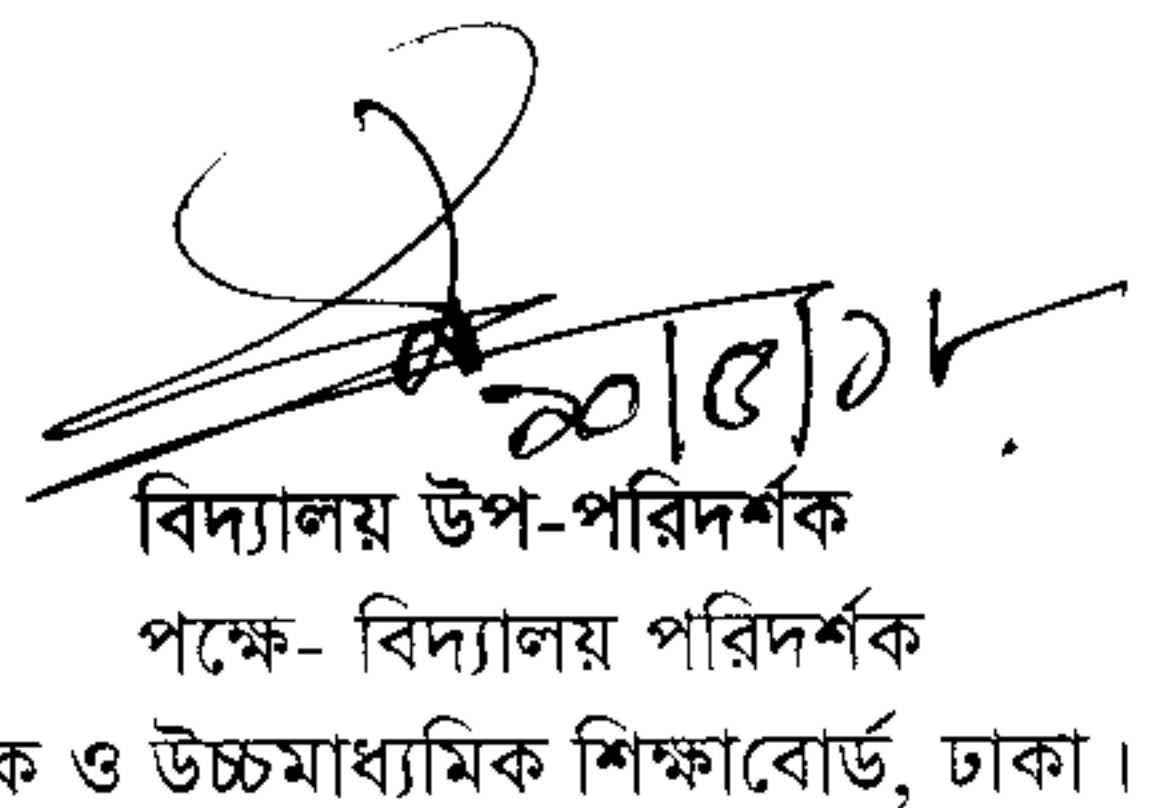 বিদ্যালয় উপ-পরিদর্শক
পক্ষে- বিদ্যালয় পরিদর্শক
ক ও উচ্চমাধ্যমিক শিক্ষাবোর্ড, ঢাকা ।